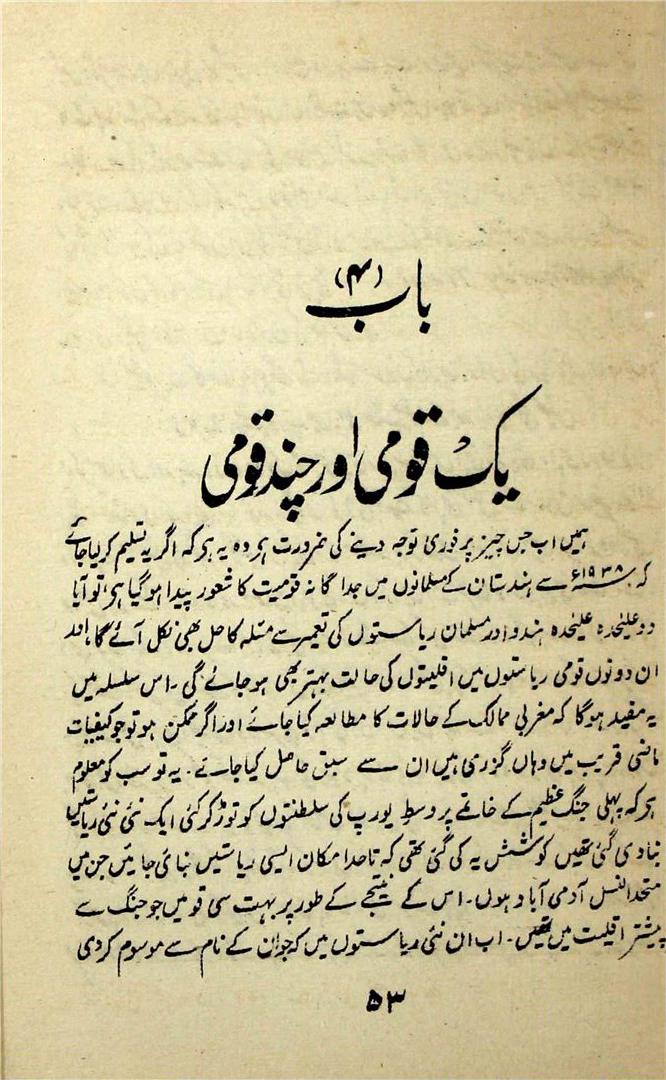 باب (۴)
یک قومی اور چند قومی
ہمیں اب جس چیز پر فوری توجہ دینے کی ضرورت ہے وہ یہ ہے کہ اگر یہ تسلیم کر لیا جائے
کہ ۱۹۳۸ء سے ہندستان کے مسلمانوں میں جداگانہ قومیت کا شعور پیدا ہو گیا ہے، تو آیا
دو علیٰحدہ علیٰحدہ ہندو اور مسلمان ریاستوں کی تعمیر سے مسئلہ کا حل بھی نکل آئے گا، اور
ان دونوں قومی ریاستوں میں اقلیتوں کی حالت بہتر بھی ہو جائے گی ۔ اس سلسلہ میں
یہ مفید ہوگا کہ مغربی ممالک کے حالات کا مطالعہ کیا جائے اور اگر ممکن ہو تو جو کیفیات
ماضی قریب میں وہاں گزری ہیں ان سے سبق حاصل کیا جائے ۔ یہ تو سب کو معلوم
ہے کہ پہلی جنگ عظیم کے خاتمے پر وسطِ یورپ کی سلطنتوں کو توڑ کر کئی ایک نئی نئی ریاستیں
بنا دی گئی تھیں کوشش یہ کی گئی تھی کہ تا حد امکان ایسی ریاستیں بنائی جائیں جن میں
متحد النسل آدمی آباد ہوں ۔ اس کے نتیجے کے طور پر بہت سی قومیں جو جنگ سے
پیشتر اقلیت میں تھیں ۔ اب ان نئی ریاستوں میں کہ جو ان کے نام سے موسوم کر دی
۵۳